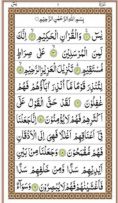 بِسْمِ اللهِ الرَّحْمٰنِ الرَّحِيْمِ
يٰسٓ ۝ وَالْقُرْاٰنِ الْحَكِيْمِ ۝ اِنَّكَ
لَمِنَ الْمُرْسَلِيْنَ ۝ عَلٰى صِرَاطٍ
مُّسْتَقِيْمٍ ۝ تَنْزِيْلَ الْعَزِيْزِ الرَّحِيْمِ ۝
لِتُنْذِرَ قَوْمًا مَّآ اُنْذِرَ اٰبَآؤُهُمْ فَهُمْ
غٰفِلُوْنَ ۝ لَقَدْ حَقَّ الْقَوْلُ عَلٰٓى
اَكْثَرِهِمْ فَهُمْ لَا يُؤْمِنُوْنَ ۝ اِنَّا جَعَلْنَا
فِيْٓ اَعْنَاقِهِمْ اَغْلٰلًا فَهِيَ اِلَى الْاَذْقَانِ
فَهُمْ مُّقْمَحُوْنَ ۝ وَجَعَلْنَا مِنْۢ بَيْنِ
اَيْدِيْهِمْ سَدًّا وَّمِنْ خَلْفِهِمْ سَدًّا
فَاَغْشَيْنٰهُمْ فَهُمْ لَا يُبْصِرُوْنَ ۝ وَسَوَآءٌ